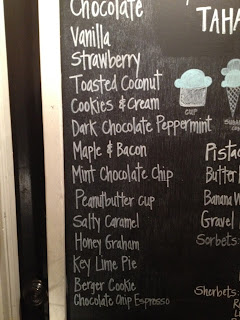 Chocolate
Vanilla
Strawberry
Toasted Coconut
Cookies & Cream
Dark Chocolate Peppermint
Maple & Bacon
Mint Chocolate Chip
Peanutbutter Cup
Salty Caramel
Honey Graham
Key Lime Pie
Berger Cookie
Chocolate Chip Espresso
TAHA
cup
Pistac
Butter
Banana W
Gravel
Sorbets:
Sherbets: